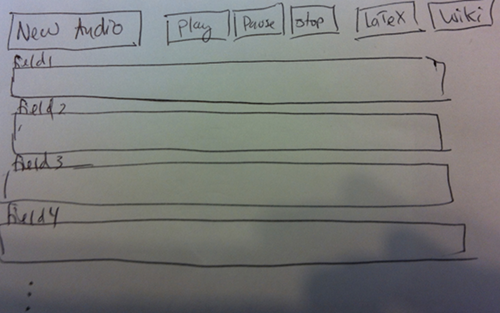 New Audio Play Pause Stop LaTeX Wiki
field1
field2
field3
field4